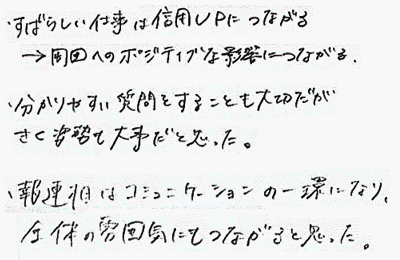 ・すばらしい仕事は信用UPにつながる
→周囲へのポジティブな影響につながる.
・分かりやすい質問をすることも大切だが
きく姿勢も大事だと思った。
・報連相はコミュニケーションの一環になり、
全体の雰囲気にもつながると思った。